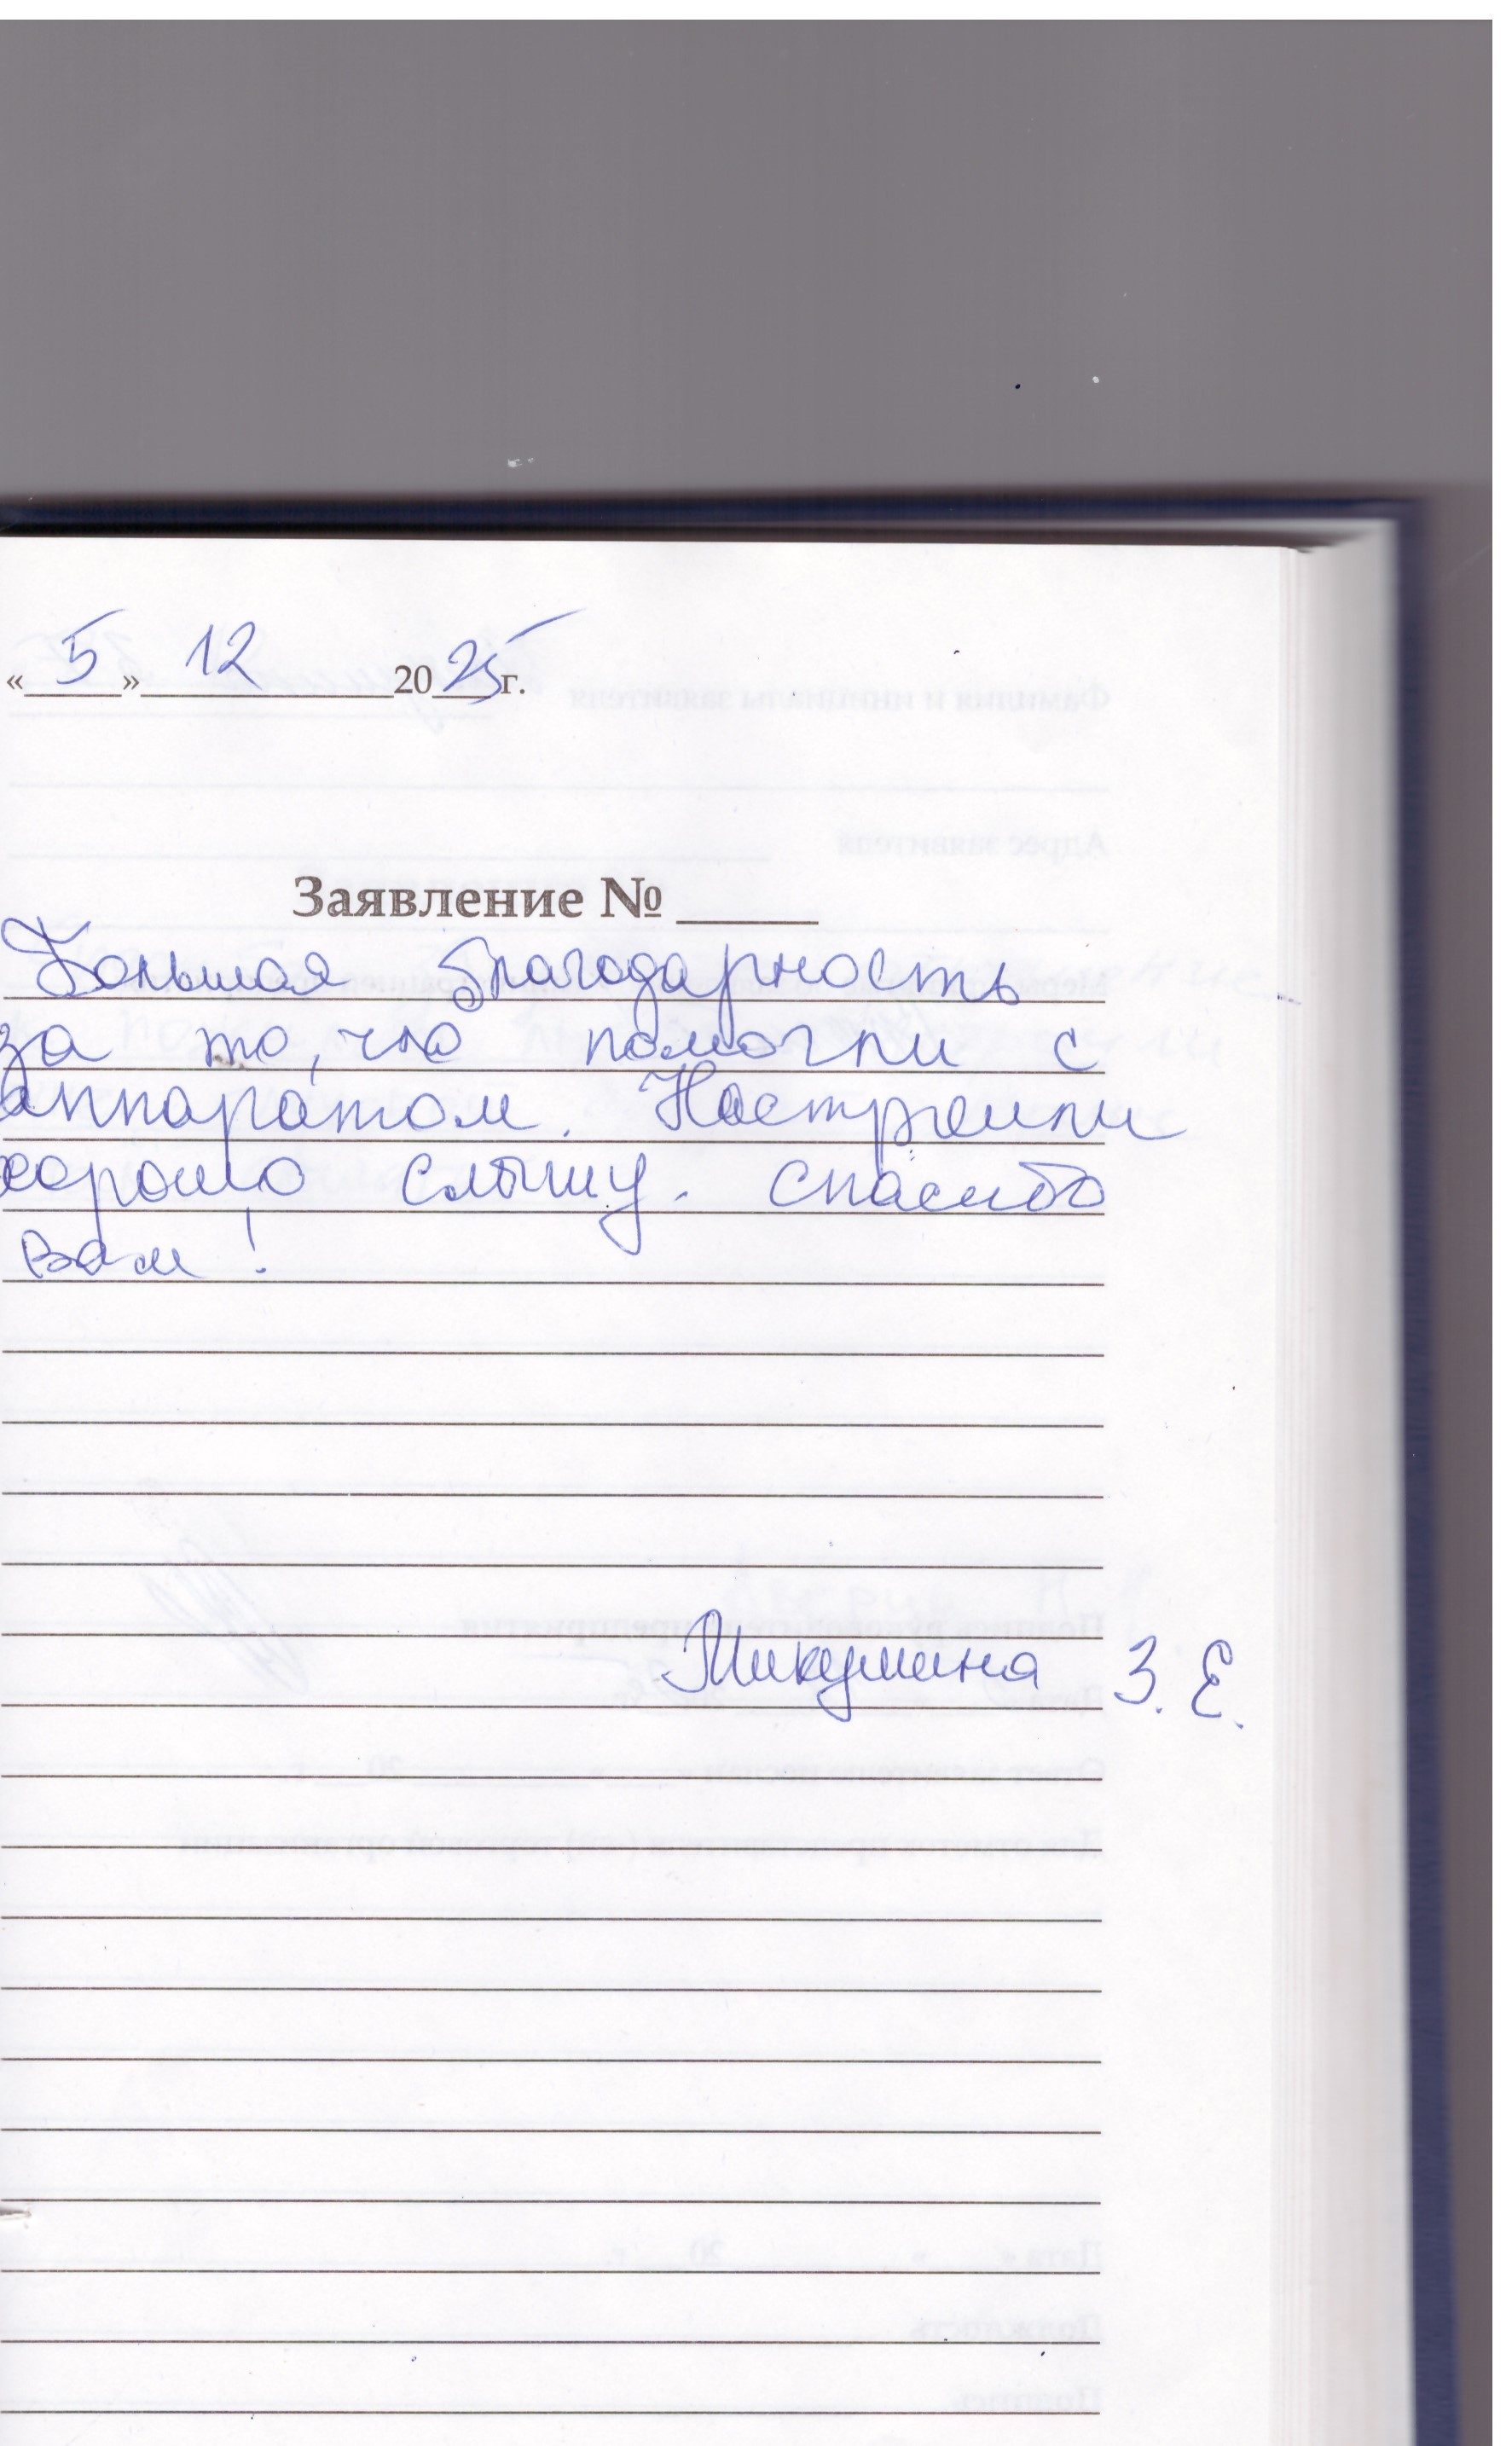 «5» 12 2025 г.
Заявление № ______
Большая благодарность
за то, что помогли с
аппаратом. Настроили
хорошо слышу. Спасибо
вам!
Микушина З. Е.